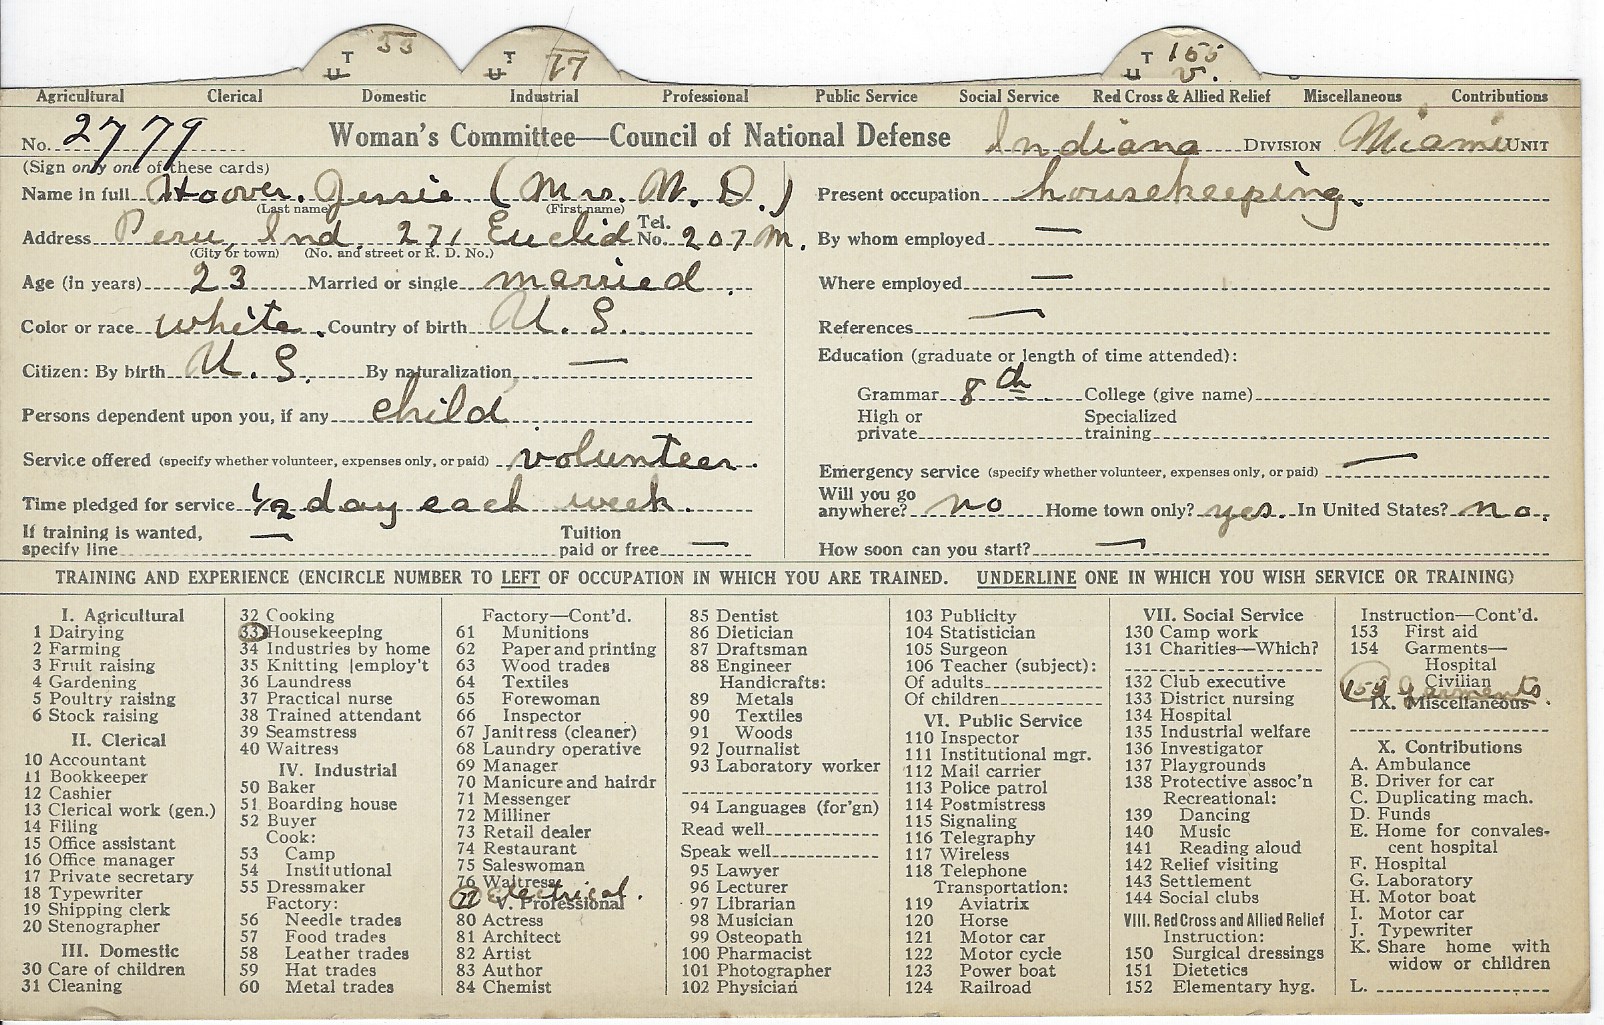 T 33
U
T 77
U
T 155
U v.
Agricultural Clerical Domestic Industrial Professional Public Service Social Service Red Cross & Allied Relief Miscellaneous Contributions
No. 2779 Woman's Committee—Council of National Defense Indiana DIVISION Miami UNIT
(Sign only one of these cards)
Name in full Hoover. Jessie. (Mrs. W. D.)
(Last name) (First name)
Address Peru, Ind. 271 Euclid Tel. No. 207 M.
(City or town) (No. and street or R. D. No.)
Age (in years) 23 Married or single married.
Color or race white. Country of birth U. S.
Citizen: By birth U. S. By naturalization —
Persons dependent upon you, if any child
Service offered (specify whether volunteer, expenses only, or paid) volunteer.
Time pledged for service 1/2 day each week.
If training is wanted, Tuition
specify line — paid or free —
Present occupation housekeeping.
By whom employed —
Where employed —
References —
Education (graduate or length of time attended):
Grammar 8th College (give name)
High or Specialized
private training
Emergency service (specify whether volunteer, expenses only, or paid) —
Will you go
anywhere? no Home town only? yes. In United States? no.
How soon can you start? —
TRAINING AND EXPERIENCE (ENCIRCLE NUMBER TO LEFT OF OCCUPATION IN WHICH YOU ARE TRAINED. UNDERLINE ONE IN WHICH YOU WISH SERVICE OR TRAINING)
I. Agricultural
1 Dairying
2 Farming
3 Fruit raising
4 Gardening
5 Poultry raising
6 Stock raising
II. Clerical
10 Accountant
11 Bookkeeper
12 Cashier
13 Clerical work (gen.)
14 Filing
15 Office assistant
16 Office manager
17 Private secretary
18 Typewriter
19 Shipping clerk
20 Stenographer
III. Domestic
30 Care of children
31 Cleaning
32 Cooking
33 Housekeeping
34 Industries by home
35 Knitting [employ't
36 Laundress
37 Practical nurse
38 Trained attendant
39 Seamstress
40 Waitress
IV. Industrial
50 Baker
51 Boarding house
52 Buyer
Cook:
53 Camp
54 Institutional
55 Dressmaker
Factory:
56 Needle trades
57 Food trades
58 Leather trades
59 Hat trades
60 Metal trades
Factory—Cont'd.
61 Munitions
62 Paper and printing
63 Wood trades
64 Textiles
65 Forewoman
66 Inspector
67 Janitress (cleaner)
68 Laundry operative
69 Manager
70 Manicure and hairdr
71 Messenger
72 Milliner
73 Retail dealer
74 Restaurant
75 Saleswoman
76 Waitress
77 Electrical.
V. Professional
80 Actress
81 Architect
82 Artist
83 Author
84 Chemist
85 Dentist
86 Dietician
87 Draftsman
88 Engineer
Handicrafts:
89 Metals
90 Textiles
91 Woods
92 Journalist
93 Laboratory worker
94 Languages (for'gn)
Read well
Speak well
95 Lawyer
96 Lecturer
97 Librarian
98 Musician
99 Osteopath
100 Pharmacist
101 Photographer
102 Physician
103 Publicity
104 Statistician
105 Surgeon
106 Teacher (subject):
Of adults
Of children
VI. Public Service
110 Inspector
111 Institutional mgr.
112 Mail carrier
113 Police patrol
114 Postmistress
115 Signaling
116 Telegraphy
117 Wireless
118 Telephone
Transportation:
119 Aviatrix
120 Horse
121 Motor car
122 Motor cycle
123 Power boat
124 Railroad
VII. Social Service
130 Camp work
131 Charities—Which?
132 Club executive
133 District nursing
134 Hospital
135 Industrial welfare
136 Investigator
137 Playgrounds
138 Protective assoc'n
Recreational:
139 Dancing
140 Music
141 Reading aloud
142 Relief visiting
143 Settlement
144 Social clubs
VIII. Red Cross and Allied Relief
Instruction:
150 Surgical dressings
151 Dietetics
152 Elementary hyg.
Instruction—Cont'd.
153 First aid
154 Garments—
Hospital
Civilian
garments.
IX. Miscellaneous
X. Contributions
A. Ambulance
B. Driver for car
C. Duplicating mach.
D. Funds
E. Home for convales-
cent hospital
F. Hospital
G. Laboratory
H. Motor boat
I. Motor car
J. Typewriter
K. Share home with
widow or children
L.